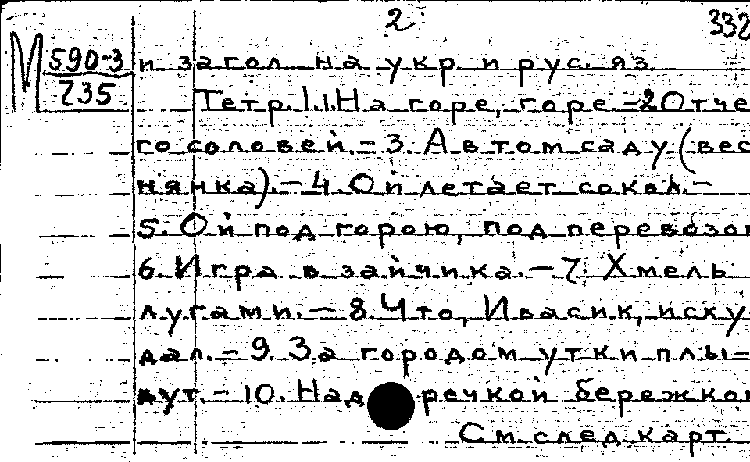 2 332
М 590-3 и загол. на укр и рус. яз.
735 Тетр. 1. 1. На горе, горе. - 2. Отче
го соловей. - 3. А в том саду (вес
нянка). - 4. Ой летает сокол. -
5. Ой под горою, под перевозом
6. Игра в зайчика. - 7. Хмель
лугами. - 8. Что, Ивасик, иску
дал. - 9. За городом утки плы-
вут. - 10. Над речкой бережком
См. след. карт